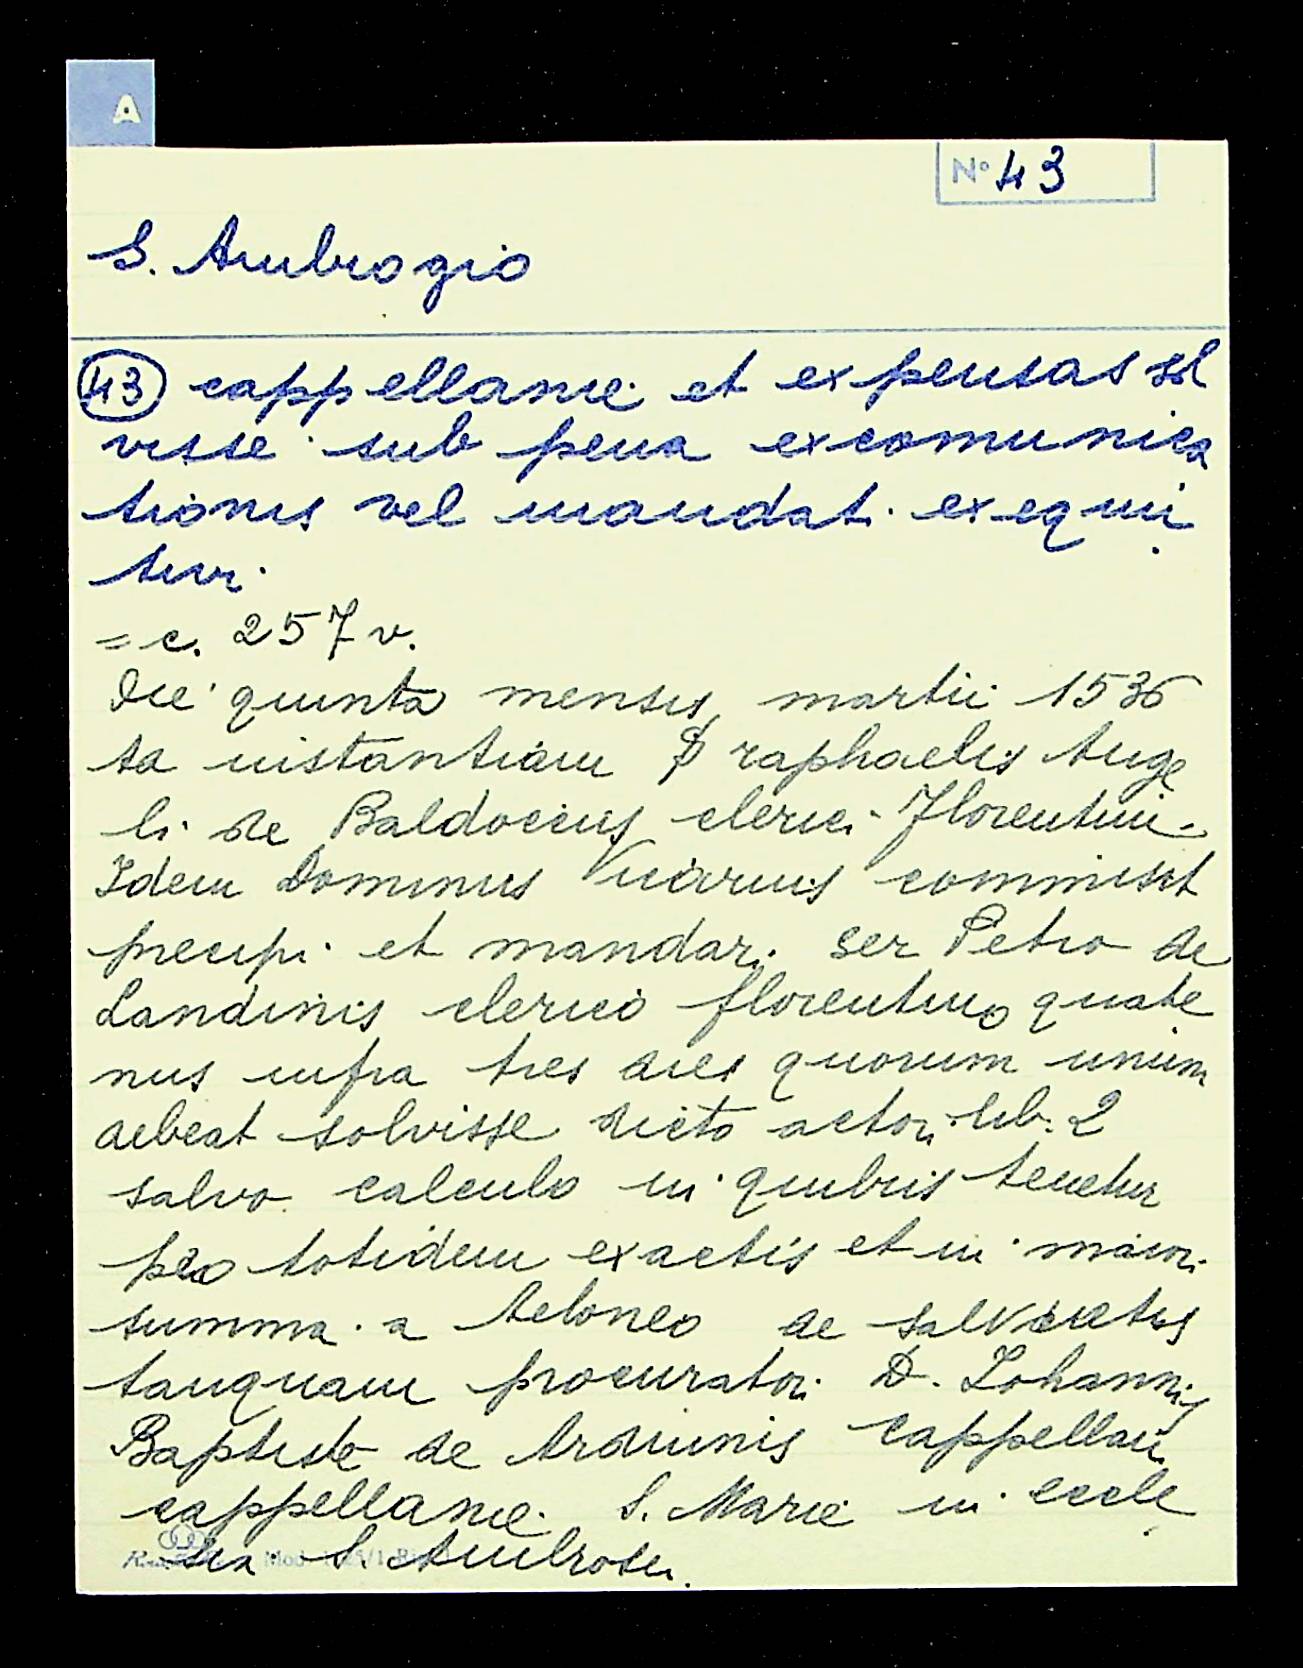 A
N° 43
S. Ambrogio
43 cappellanie et expensas sol
visse sub pena excomunica
tionis vel mandat. exequi
tur.
= c. 257 v.
Die quinta mensis martii 1536
ta instantiam raphaelis Ange
li de Baldocciis clerici Florentini
Idem Dominus Vicarius commisit
precipi et mandari ser Petro de
Landinis clerico florentino quate
nus infra tres dies quorum unum
debeat solvisse dicto actori lib. 2
salvo calculo in quibus tenetur
pro totidem exactis et in maiori
summa a teloneo de salvectis
tanquam procuratori D. Iohannis
Baptiste de Arduinis cappellani
cappellanie S. Marie in eccle
sia S. Ambrosii